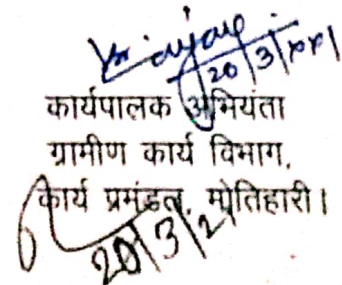 20/3/2021
कार्यपालक अभियंता
ग्रामीण कार्य विभाग,
कार्य प्रमंडल, मोतिहारी।
20/3/21